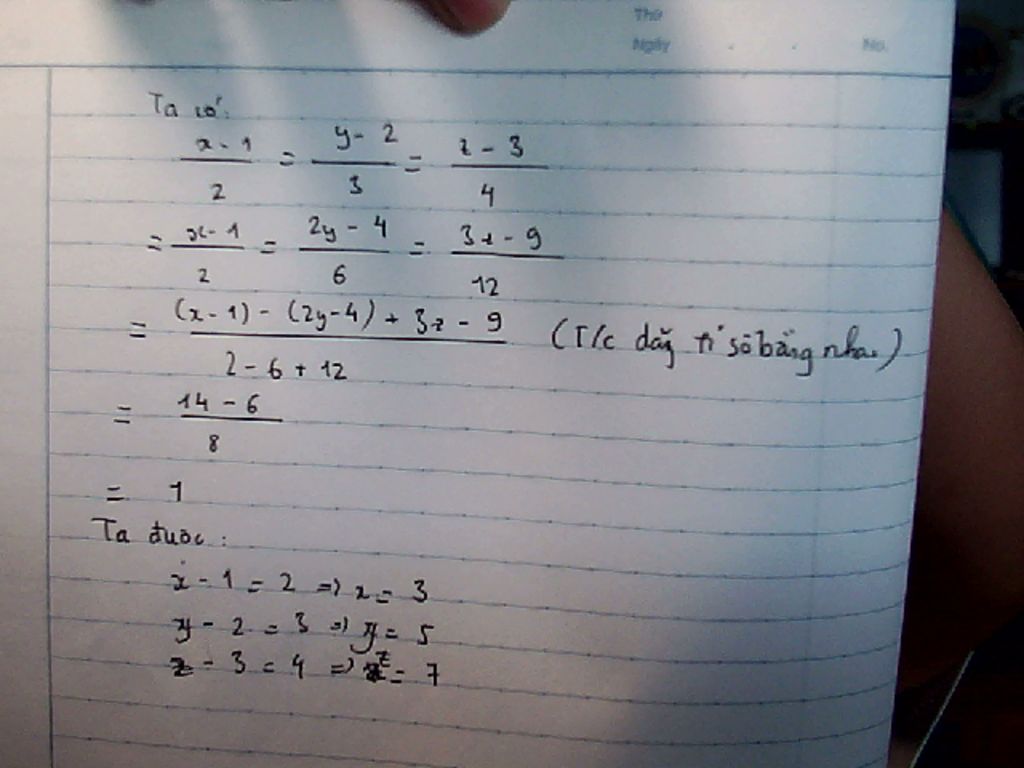 Thứ
Ngày . . No.
Ta có:
x - 1 / 2 = y - 2 / 3 = z - 3 / 4
= x - 1 / 2 = 2y - 4 / 6 = 3z - 9 / 12
= (x - 1) - (2y - 4) + 3z - 9 / 2 - 6 + 12 (T/c dãy tỉ số bằng nhau)
= 14 - 6 / 8
= 1
Ta được:
x - 1 = 2 => x = 3
y - 2 = 3 => y = 5
z - 3 = 4 => z = 7